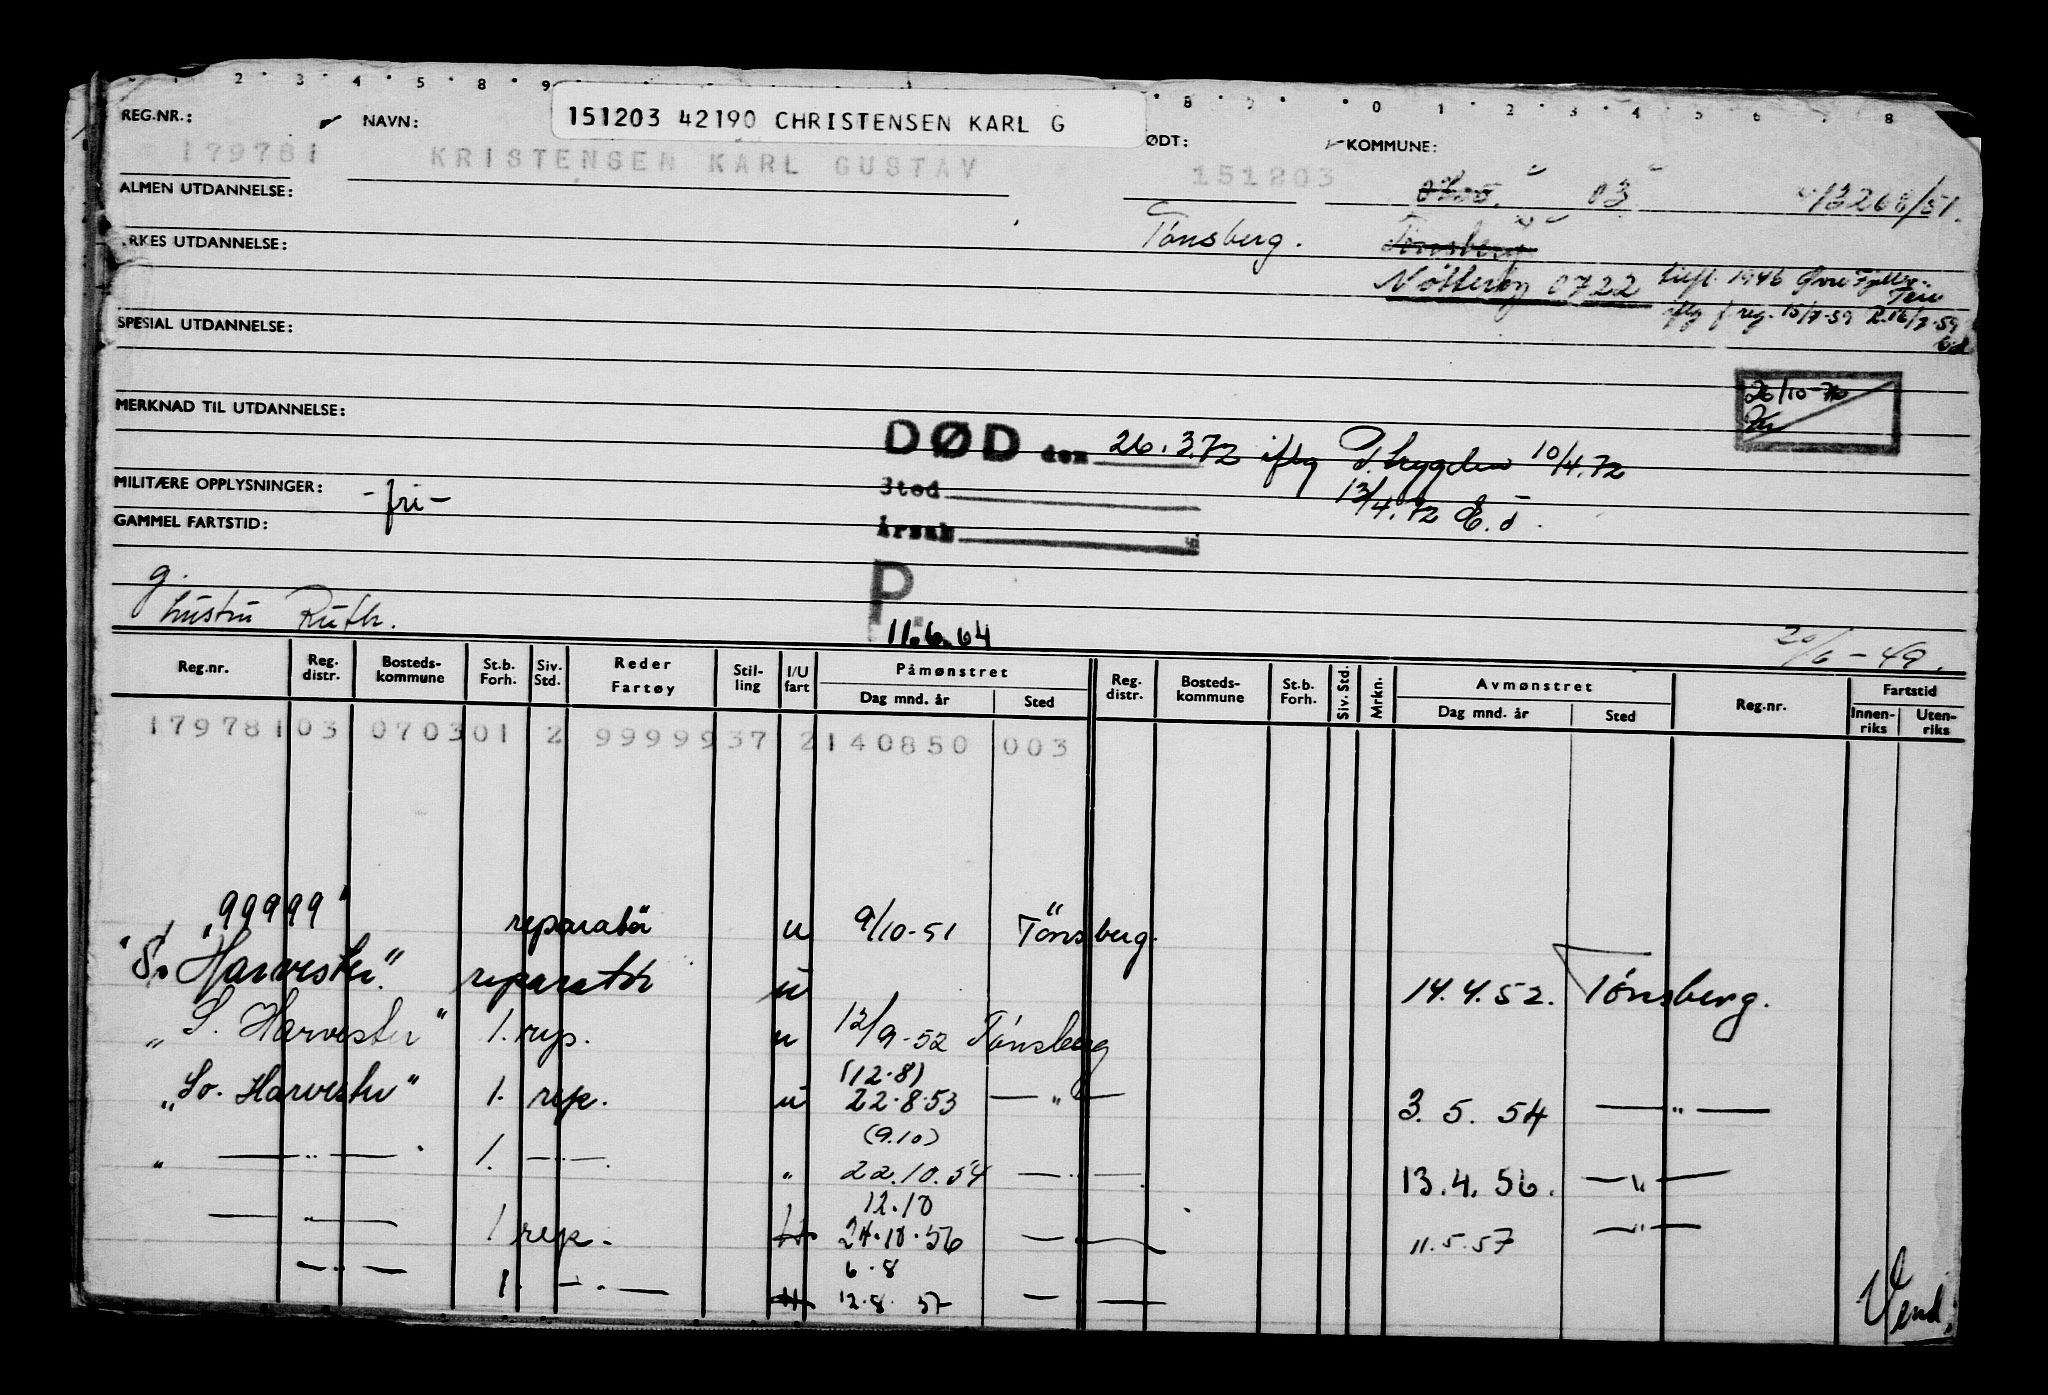 2 3 4 5 8 9 8 0 1 2 3 4 5 6 7 8
REG.NR.: NAVN: 151203 42190 CHRISTENSEN KARL G ØDT: KOMMUNE:
179781 KRISTENSEN KARL GUSTAV 151203 03 13268/51.
ALMEN UTDANNELSE:
Tønsberg. Tønsberg
RKES UTDANNELSE:
Nøtterøy 0722 1946 Øvre
reg. 15/7-59 R.16/7-59
SPESIAL UTDANNELSE:
26/10-70
MERKNAD TIL UTDANNELSE:
DØD den 26.3.72 iflg P.trygden 10/4.72
Sted 13/4.72 E.J.
MILITÆRE OPPLYSNINGER: -fri-
GAMMEL FARTSTID: Årsak
P
g.
hustru Ruth. 11.6.64
20/6-49.
Reg.nr. Reg. distr. Bosteds- kommune St.b. Forh. Siv. Std. Reder Fartøy Stil- ling I/U fart Påmønstret Dag mnd. år Sted Reg. distr. Bosteds- kommune St.b. Forh. Siv. Std. Mrkn. Avmønstret Dag mnd. år Sted Reg.nr. Fartstid Innen- riks Uten- riks
179781 03 0703 01 2 9999937 2 140850 003
"99999" reparatør u 9/10-51 Tønsberg.
"So Harvester" reparatør u 14.4.52. Tønsberg.
"S. Harvester" 1. rep. u 12/9-52 Tønsberg
(12.8)
"So. Harvester" 1. rep. u 22.8.53 — " — 3. 5. 54 — " —
(9.10)
" — " — " 1. — " — " 22.10.54 — " — 13.4.56. — " —
12.10
— " — 1 rep. u 24.10.56 — " — 11.5.57 — " —
6.8
— " — 1. — " — u 12.8.57 — " —
Vend.